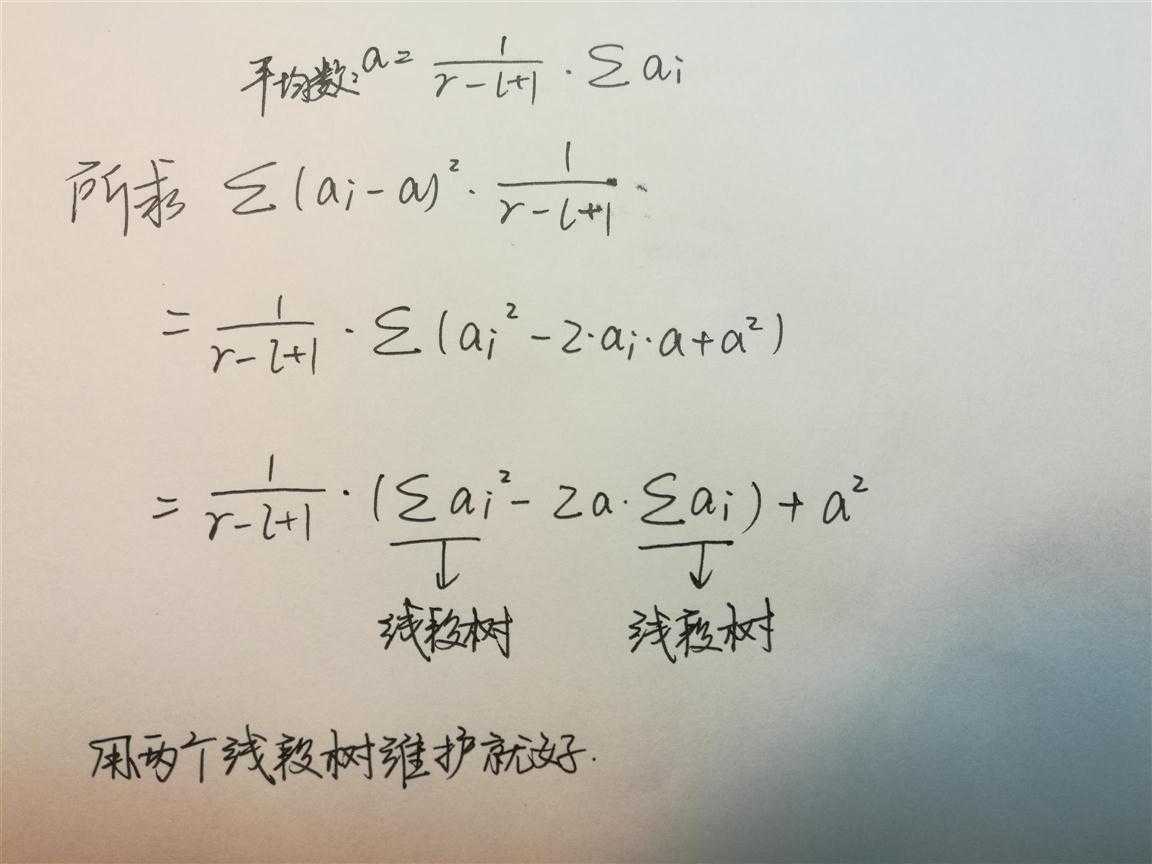 平均数: a = 1/(r-l+1) · ∑ ai
所求 ∑(ai - a)² · 1/(r-l+1)
= 1/(r-l+1) · ∑(ai² - 2·ai·a + a²)
= 1/(r-l+1) · (∑ai² - 2a·∑ai) + a²
线段树 线段树
用两个线段树维护就好.